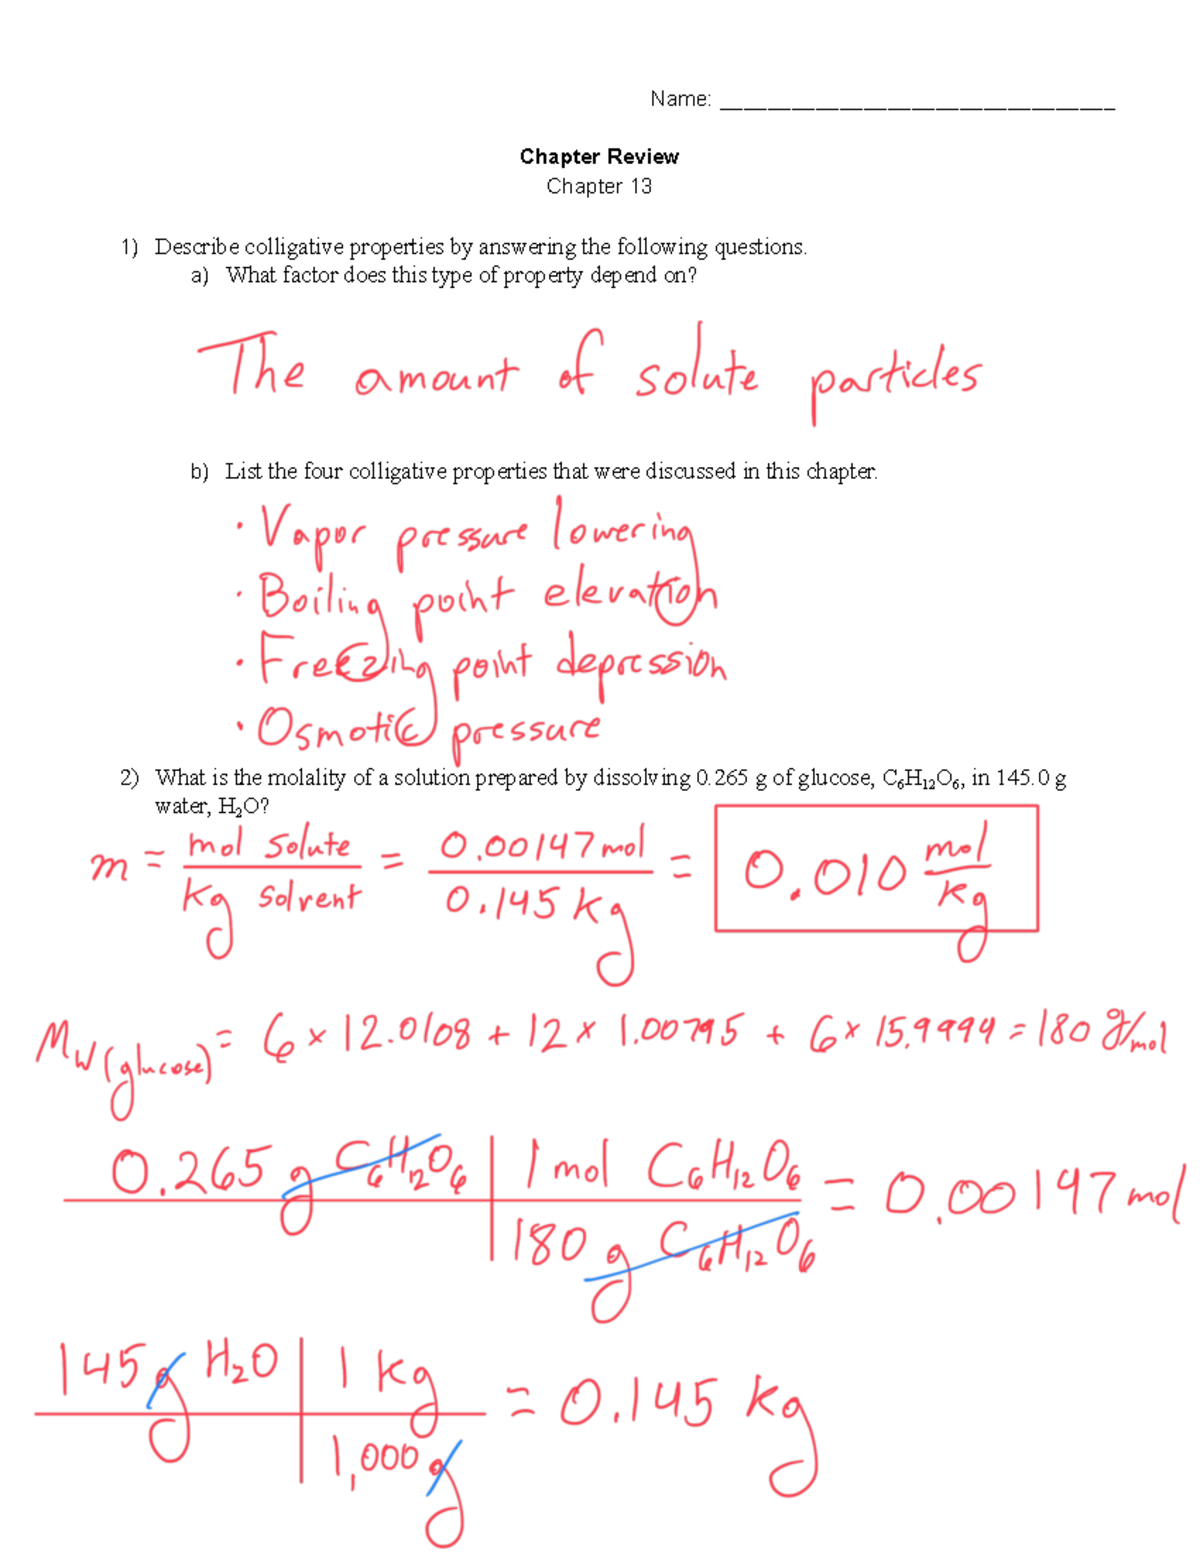 Name: ______________________________
Chapter Review
Chapter 13
1) Describe colligative properties by answering the following questions.
a) What factor does this type of property depend on?
The amount of solute particles
b) List the four colligative properties that were discussed in this chapter.
• Vapor pressure lowering
• Boiling point elevation
• Freezing point depression
• Osmotic pressure
2) What is the molality of a solution prepared by dissolving 0.265 g of glucose, C₆H₁₂O₆, in 145.0 g
water, H₂O?
m = mol solute / kg solvent = 0.00147 mol / 0.145 kg = 0.010 mol / kg
Mw(glucose) = 6 × 12.0108 + 12 × 1.00795 + 6 × 15.9994 = 180 g/mol
0.265 g C₆H₁₂O₆ | 1 mol C₆H₁₂O₆ = 0.00147 mol
180 g C₆H₁₂O₆
145 g H₂O | 1 kg = 0.145 kg
1,000 g